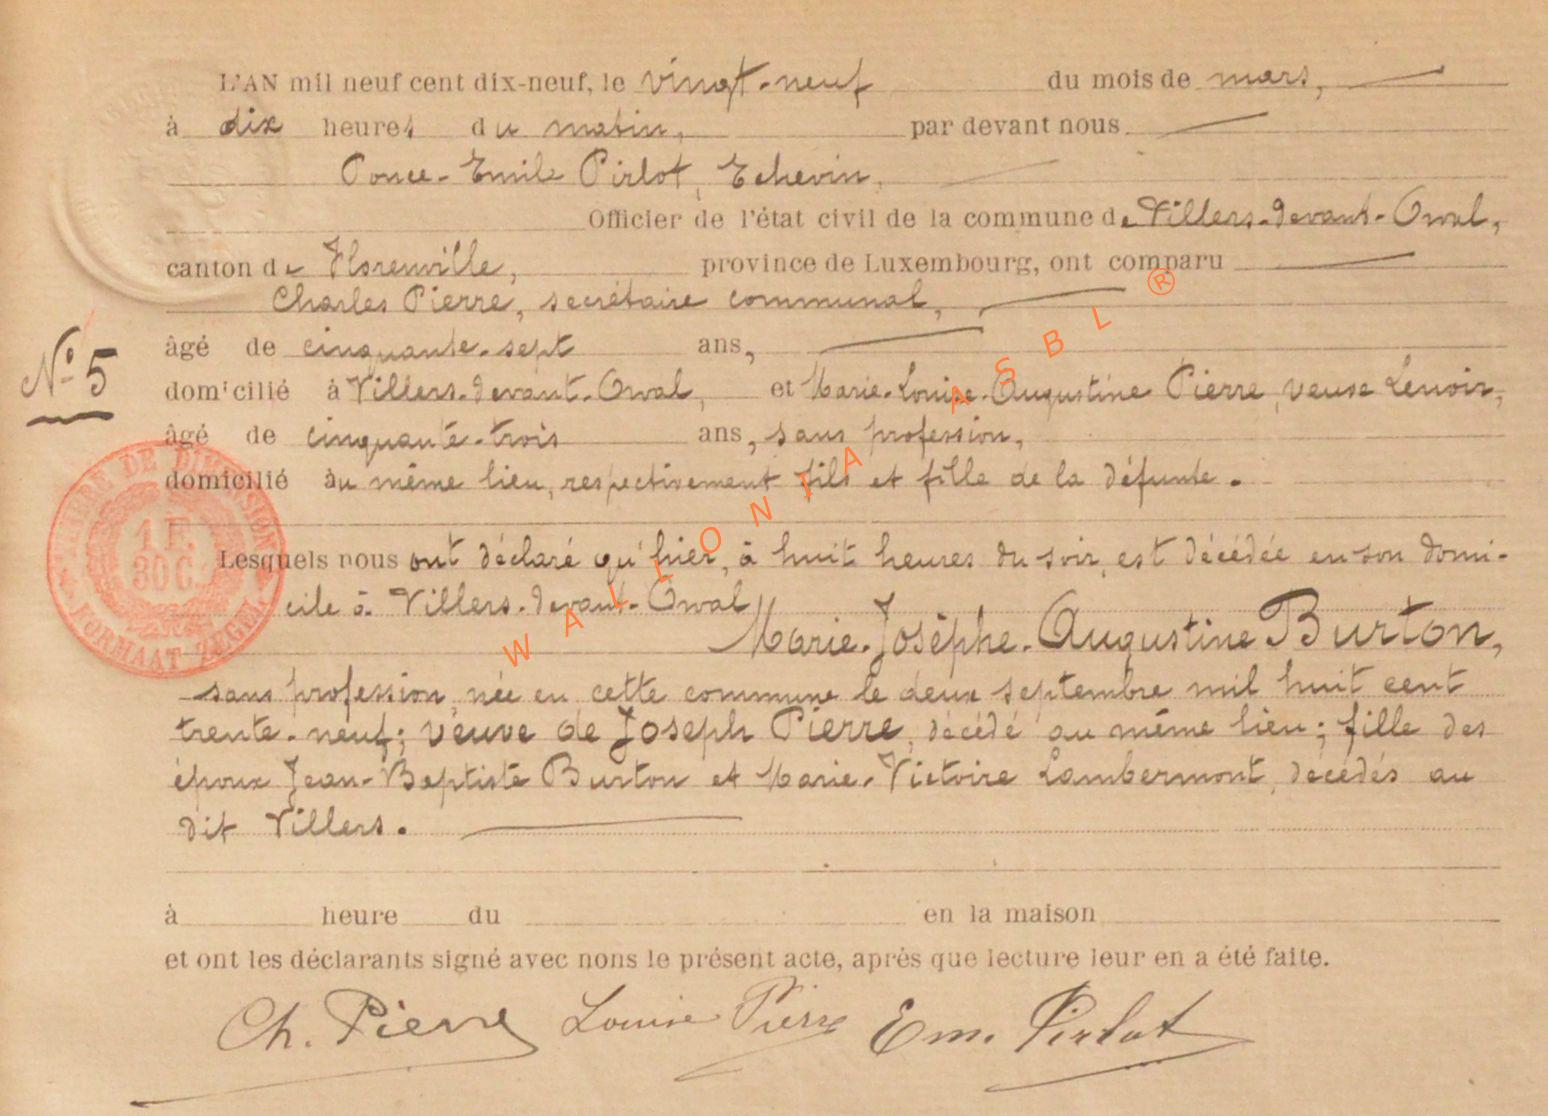 L'AN mil neuf cent dix-neuf, le vingt-neuf du mois de mars,
à dix heures du matin, par devant nous
Ponce-Emile Pirlot, Echevin,
Officier de l'état civil de la commune de Villers-devant-Orval,
canton de Florenville, province de Luxembourg, ont comparu
Charles Pierre, secrétaire communal,
N° 5
âgé de cinquante-sept ans,
domicilié à Villers-devant-Orval, et Marie-Louise-Augustine Pierre, veuve Lenoir,
âgé de cinquante-trois ans, sans profession,
domicilié au même lieu, respectivement fils et fille de la défunte.
TIMBRE DE DIMENSION
1 F. 30 C.
FORMAAT ZEGEL
Lesquels nous ont déclaré qu'hier, à huit heures du soir, est décédée en son domi-
cile à Villers-devant-Orval
Marie-Josèphe-Augustine Burton,
sans profession, née en cette commune le deux septembre mil huit cent
trente-neuf; veuve de Joseph Pierre, décédé au même lieu; fille des
époux Jean-Baptiste Burton et Marie-Victoire Lambermont, décédés au
dit Villers.
à heure du en la maison
et ont les déclarants signé avec nous le présent acte, après que lecture leur en a été faite.
Ch. Pierre Louise Pierre Em. Pirlot
WALLONIA ASBL ®